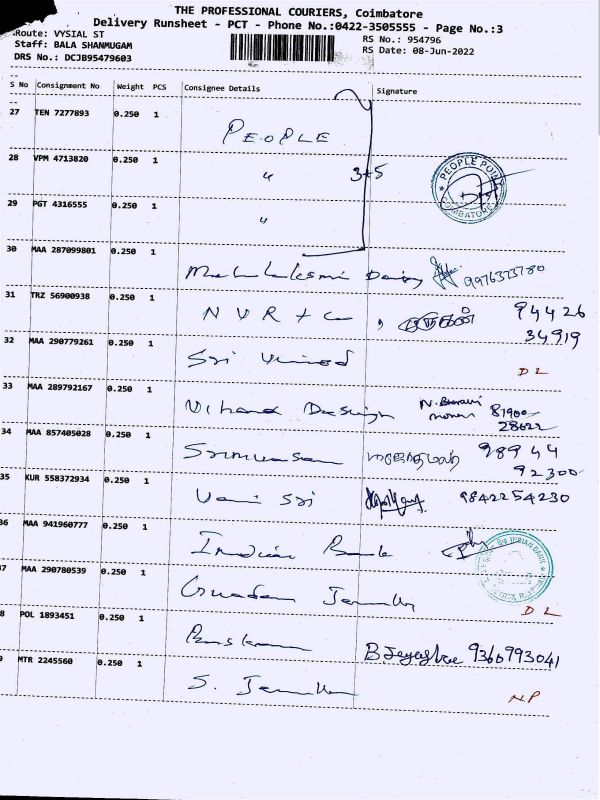 THE PROFESSIONAL COURIERS, Coimbatore
Delivery Runsheet - PCT - Phone No.:0422-3505555 - Page No.:3
Route: VYSIAL ST
RS No.: 954796
Staff: BALA SHANMUGAM
RS Date: 08-Jun-2022
DRS No.: DCJB95479603
S No Consignment No Weight PCS Consignee Details Signature
27 TEN 7277893 0.250 1
PEOPLE
28 VPM 4713820 0.250 1
" 3+5
PEOPLE POINT
COIMBATORE
29 PGT 4316555 0.250 1
"
30 MAA 287099801 0.250 1
9976373780
31 TRZ 56900938 0.250 1
N V R + C 94426
34919
32 MAA 290779261 0.250 1
Sri Vinod DL
33 MAA 289792167 0.250 1
Vihana Design 81900
28622
34 MAA 857405028 0.250 1
Srinivasan 98944
92300
35 KUR 558372934 0.250 1
Vani Sri 9842254230
36 MAA 941960777 0.250 1
Indian Bank
INDIAN BANK
7 MAA 290780539 0.250 1
DL
8 POL 1893451 0.250 1
9360793041
9 MTR 2245560 0.250 1
S. NP